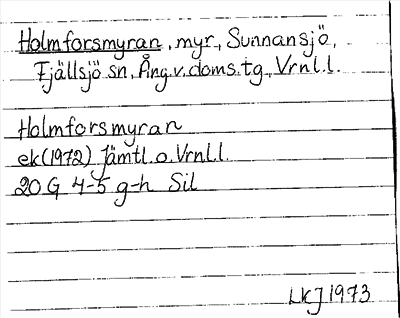 Holmforsmyran, myr, Sunnansjö,
Fjällsjö sn, Ång.v.doms.tg, Vrnl.l.
Holmforsmyran
ek(1972) Jämtl.o.Vrnl.l.
20 G 4-5 g-h Sil
LKJ 1973